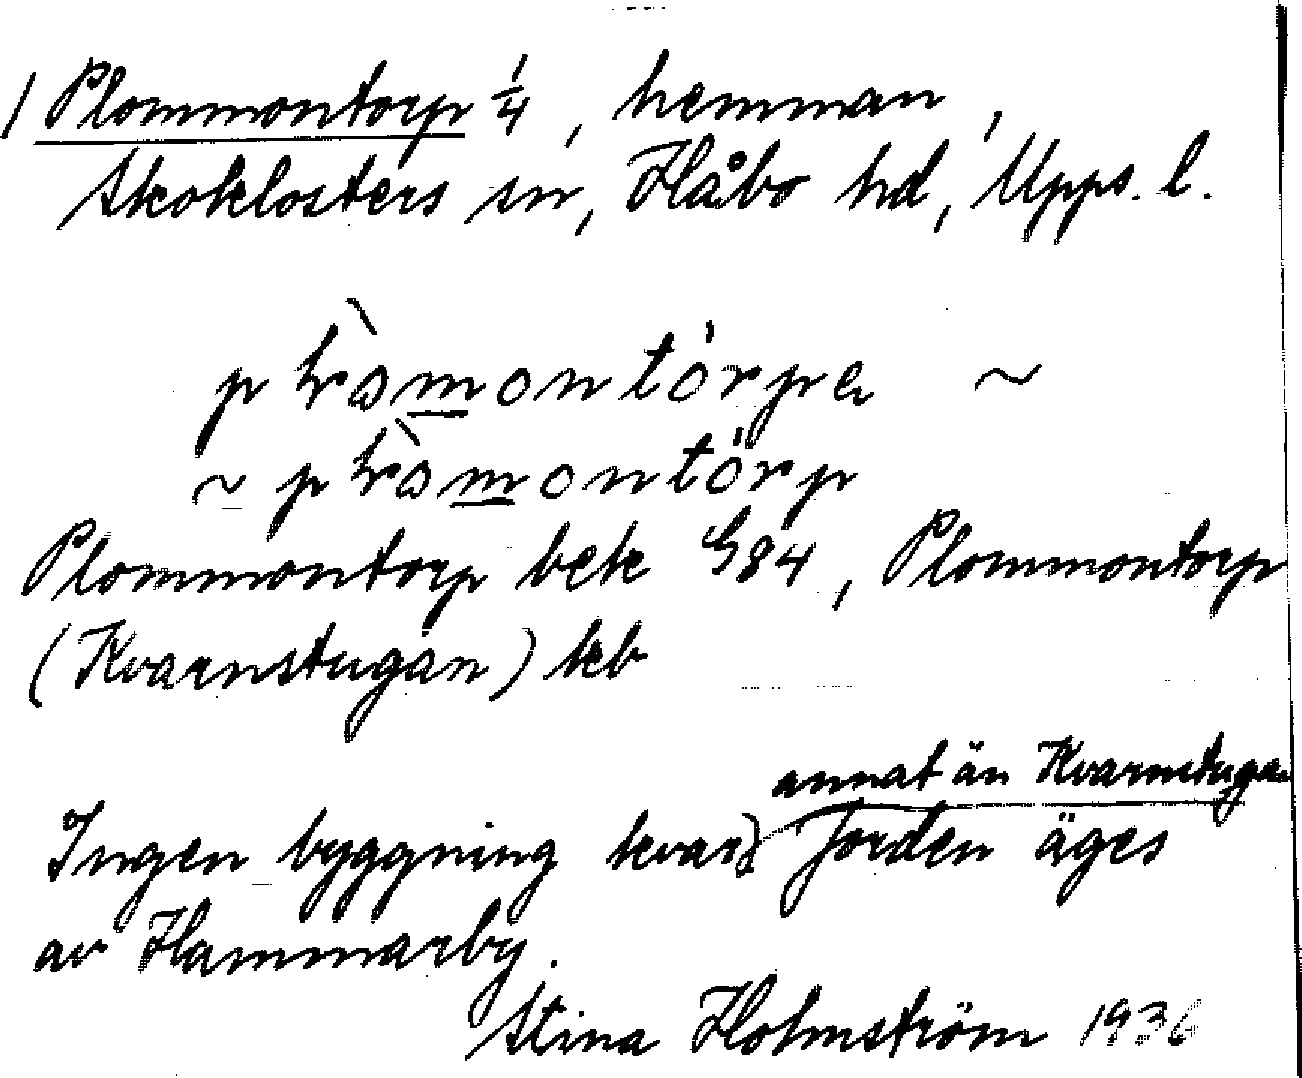 1 Plommontorp 1/4, hemman,
Skoklosters sn, Håbo hd, Upps. l.
Plommontorp bek G84, Plommontorp
(Kvarnstugan) kb
annat än Kvarnstugan
Ingen byggning kvar Jorden äges
av Hammarby.
Stina Holmström 1936